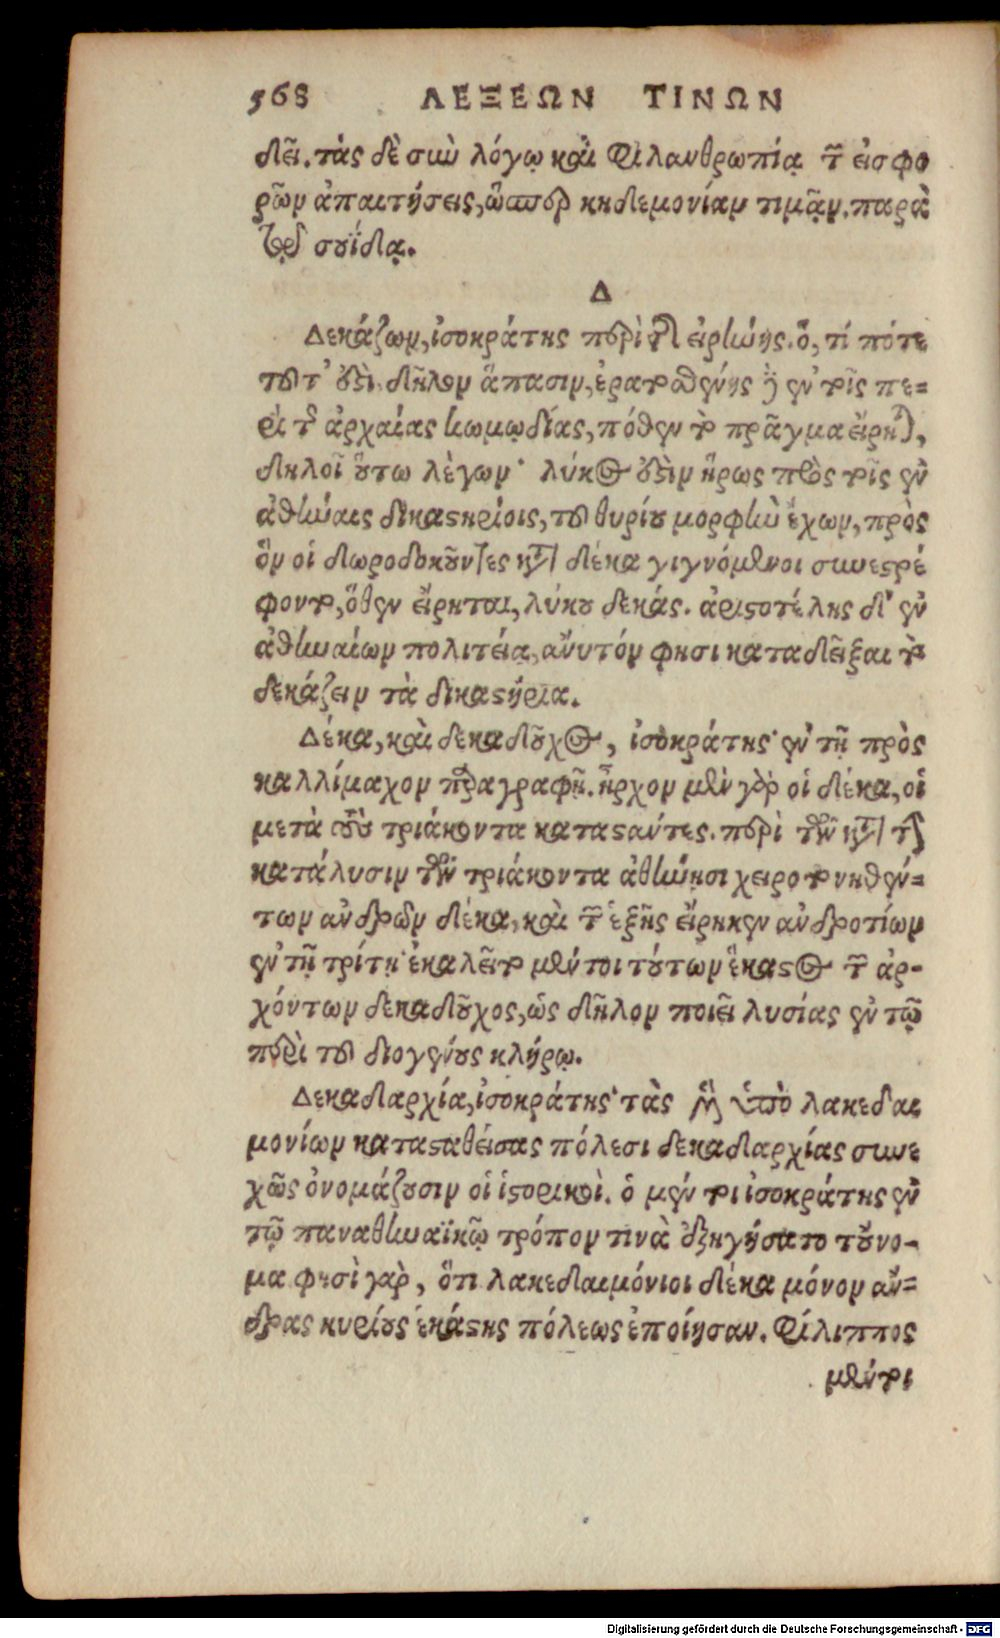 568 ΛΕΞΕΩΝ ΤΙΝΩΝ
δεῖ. τὰς δὲ σὺν λόγῳ καὶ φιλανθρωπίᾳ τῶν εἰσφο
ρῶν ἀπαιτήσεις, ὥσπερ κηδεμονίαν τιμᾷν. παρὰ
τῷ σουΐδᾳ.
Δ
Δεκάζων, ἰσοκράτης περὶ τῆς εἰρήνης. ὅ, τί πότε
τοῦτ' ἐστὶ δῆλον ἅπασιν, ἐρατοσθένης δὲ ἐν τοῖς πε-
ρὶ τῆς ἀρχαίας κωμῳδίας, πόθεν τὸ πρᾶγμα εἴρηται,
δηλοῖ οὕτω λὲγων· λύκος ἐστὶν ἥρως πρὸς τοῖς ἐν
ἀθήναις δικαστηρίοις, τοῦ θυρίου μορφὴν ἔχων, πρὸς
ὃν οἱ δωροδοκοῦντες κατὰ δέκα γιγνόμενοι συνεστρέ
φοντο, ὅθεν εἴρηται, λύκου δεκάς. ἀριστοτέλης δ' ἐν
ἀθηναίων πολιτείᾳ, ἄνυτόν φησι καταδεῖξαι τὸ
δεκάζειν τὰ δικαστήρια.
Δέκα, καὶ δεκαδοῦχος, ἰσοκράτης· ἐν τῇ πρὸς
καλλίμαχον παραγραφῇ. ἦρχον μὲν γὰρ οἱ δέκα, οἱ
μετὰ τοὺς τριάκοντα καταστάντες. περὶ τῶν κατὰ τὴν
κατάλυσιν τῶν τριάκοντα ἀθήνῃσι χειροτονηθέν-
των ἀνδρῶν δέκα, καὶ τῶν ἑξῆς εἴρηκεν ἀνδροτίων
ἐν τῇ τρίτῃ· ἐκαλεῖτο μέντοι τούτων ἕκαστος τῶν ἀρ-
χόντων δεκαδοῦχος, ὡς δῆλον ποιεῖ λυσίας ἐν τῷ
περὶ τοῦ διογένους κλήρῳ.
Δεκαδαρχία, ἰσοκράτης· τὰς μὲν ὑπὸ λακεδαι
μονίων κατασταθείσας πόλεσι δεκαδαρχίας συνε
χῶς ὀνομάζουσιν οἱ ἱστορικοὶ. ὁ μέντοι ἰσοκράτης ἐν
τῷ παναθηναϊκῷ τρόπον τινὰ ἐξηγήσατο τοὔνο-
μα φησὶ γαρ, ὅτι λακεδαιμόνιοι δέκα μόνον ἄν-
δρας κυρίους ἑκάστης πόλεως ἐποίησαν. Φίλιππος
μέντοι
Digitalisierung gefördert durch die Deutsche Forschungsgemeinschaft - DFG